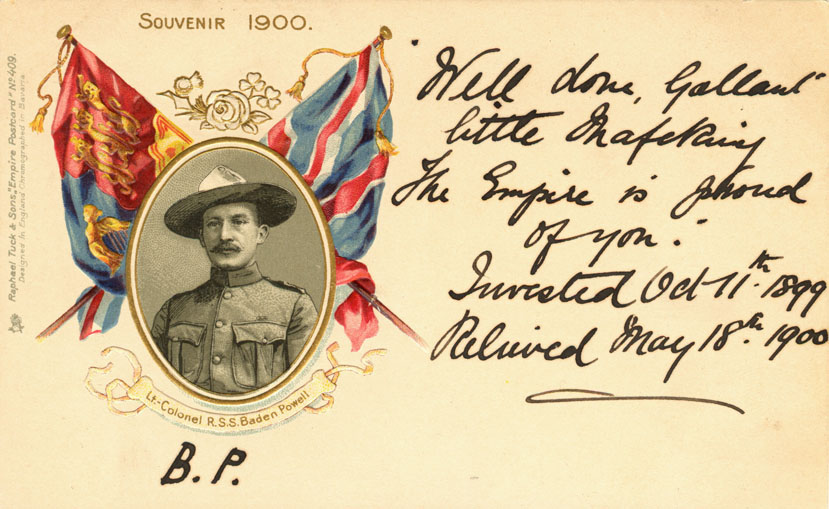 SOUVENIR 1900.
"Well done, Gallant
little Mafeking
The Empire is proud
of you."
Invested Oct 11th 1899
Relieved May 18th 1900
Lt.-Colonel R.S.S. Baden Powell
B.P.
Raphael Tuck & Sons' "Empire Postcard" No 409.
Designed in England Chromographed in Bavaria